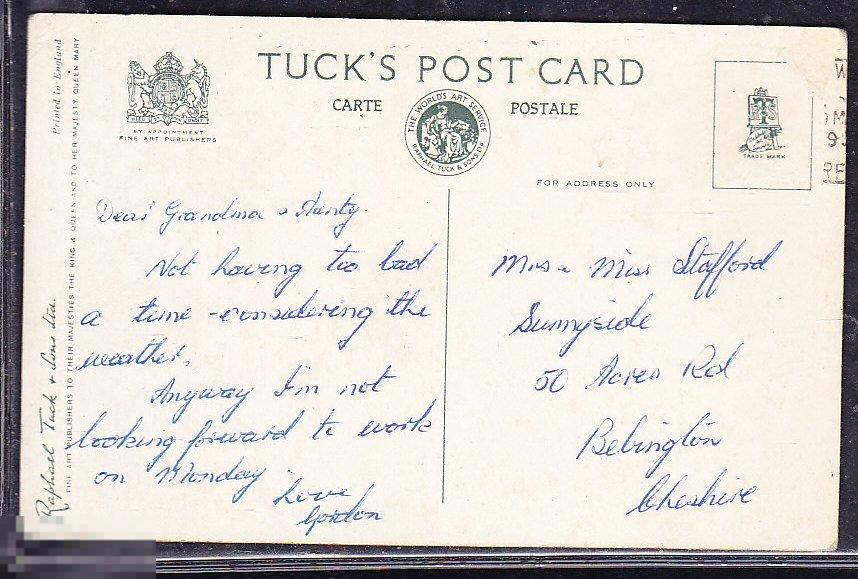 TUCK'S POST CARD
CARTE POSTALE
BY APPOINTMENT
FINE ART PUBLISHERS
THE WORLD'S ART SERVICE
RAPHAEL TUCK & SONS LTD
TRADE MARK
FOR ADDRESS ONLY
Printed in England
Raphael Tuck & Sons Ltd.
FINE ART PUBLISHERS TO THEIR MAJESTIES THE KING & QUEEN AND TO HER MAJESTY QUEEN MARY
Dear Grandma & Aunty.
Not having too bad
a time - considering the
weather.
Anyway I'm not
looking forward to work
on Monday
Love
Gordon
Mrs & Miss Stafford
Sunnyside
50 Acres Rd
Bebington
Cheshire